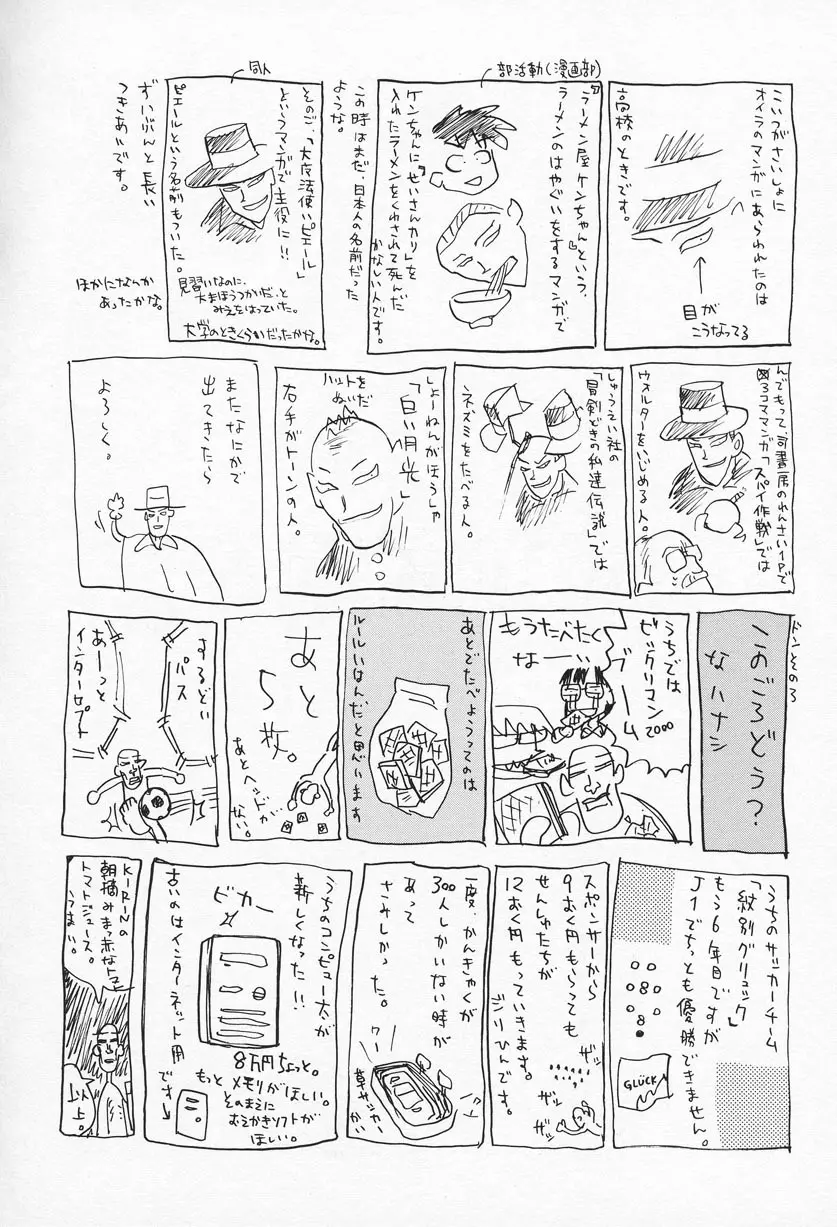 こいつがさいしょに
オイラのマンガにあらわれたのは
高校のときです。
目が
こうなってる
部活動(漫画部)
「ラーメン屋ケンちゃん」という、
ラーメンのはやぐいをするマンガで
ケンちゃんに「せいさんカリ」を
入れたラーメンをくわされて死んだ
かなしい人です。
この時はまだ、日本人の名前だった
ような。
同人
そのご、「大広法使いピエール」
というマンガで主役に!!
ピエールという名前もついた。
見習いなのに、
大まほうつかいだ、と
みえをはっていた。
大学のときくらいだったかな。
ずいぶんと長い
つきあいです。
ほかになんか
あったかな。
んでもって、司書房のれんさい1Pで
3コママンガ「スパイ作戦」では
ウォルターをいじめる人。
しゅうえい社の
「冒剣どきの私達伝説」では
ネズミをたべる人。
しょーねんがほうしゃ
「白い月光」
ハットを
ぬいだ
右手がトーンの人。
またなにかで
出てきたら
よろしく。
ドンその3
このごろどう?
なハナシ
うちでは
ビックリマン
2000
ブーム
もうたべたく
なーい
あとでたべようってのは
ルールいはんだと思います
あと
5枚。
あとヘッドが
ない。
するどい
パス
あーっと
インターセプト
うちのサッカーチーム
「紋別グリュック」
もう6年目ですが
J1でちっとも優勝できません。
GLÜCK
スポンサーから
9おく円もらっても
せんしゅたちが
12おく円もっていきます。
ラリひんです。
ザッ
ザッ
ザッ
一度、かんきゃくが
300人しかいない時が
あって
さみしかった。
ワー
草サッカーかい
うちのコンピュー太が
新しくなった!!
ピカー
8万円ちょっと。
もっとメモリがほしい。
そのまえに
おえかきソフトが
ほしい。
古いのはインターネット用
です→
KIRINの
朝摘みまっ赤なトマト
トマトジュース。
うまい。
以上。